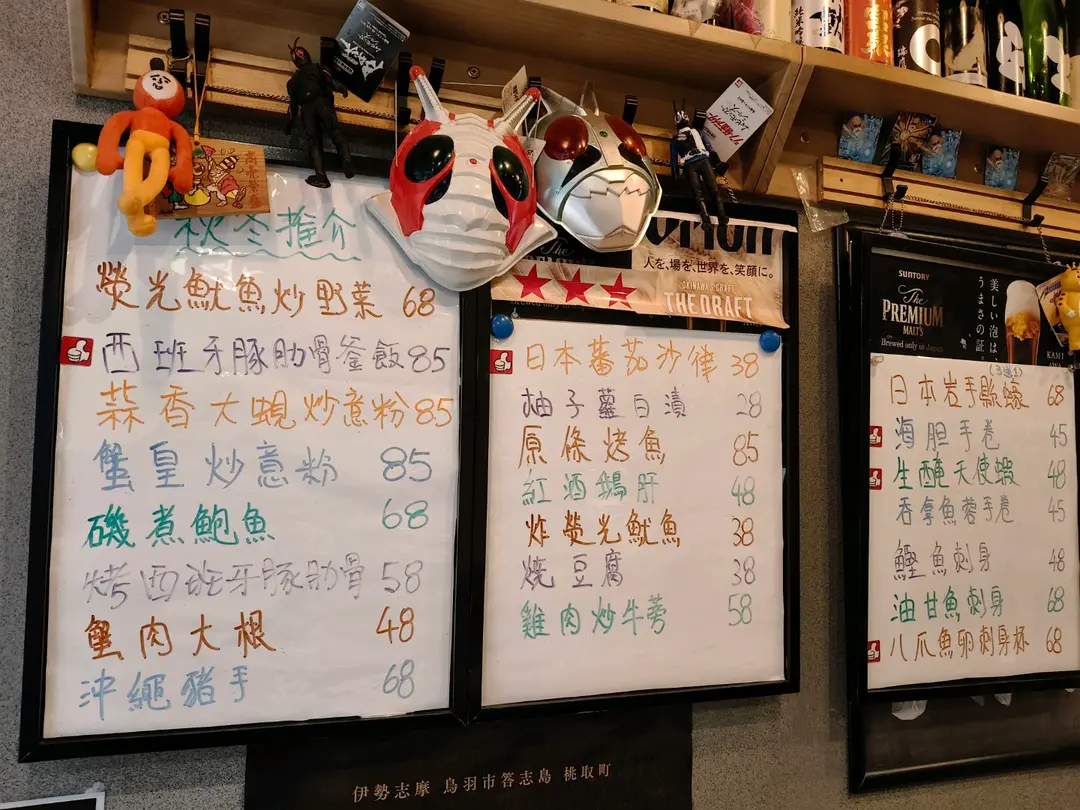 秋冬推介
熒光魷魚炒野菜 68
西班牙豚肋骨釜飯 85
蒜香大蜆炒意粉 85
蟹皇炒意粉 85
磯煮鮑魚 68
烤西班牙豚肋骨 58
蟹肉大根 48
沖繩豬手 68
人を、場を、世界を、笑顔に。
OKINAWA CRAFT
THE DRAFT
日本蕃茄沙律 38
柚子蘿白漬 28
原條烤魚 85
紅酒鵝肝 48
炸熒光魷魚 38
燒豆腐 38
雞肉炒牛蒡 58
SUNTORY
The
PREMIUM
MALT'S
Brewed only in Japan
美しい泡は、
うまさの証
日本岩手縣蠔 68
海胆手卷 45
生醃天使蝦 48
吞拿魚蓉手卷 45
鰹魚刺身 48
油甘魚刺身 68
八爪魚卵刺身杯 68
伊勢志摩 鳥羽市答志島 桃取町